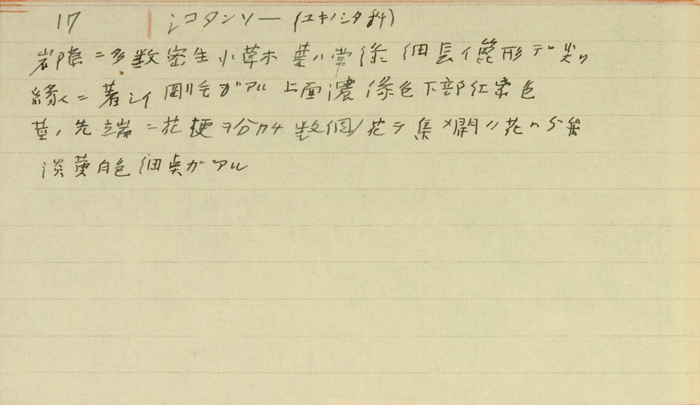 17 シコタンソー (ユキノシタ科)
岩隙ニ多数密生 小草木 葉ハ常緑 細長イ箆形デ尖リ
緣ニ著シイ剛毛ガアル 上面濃緑色下部紅紫色
茎ノ先端ニ花梗ヲ分カチ数個ノ花ヲ集メ開ク 花ハ
淡黄白色 細点ガアル